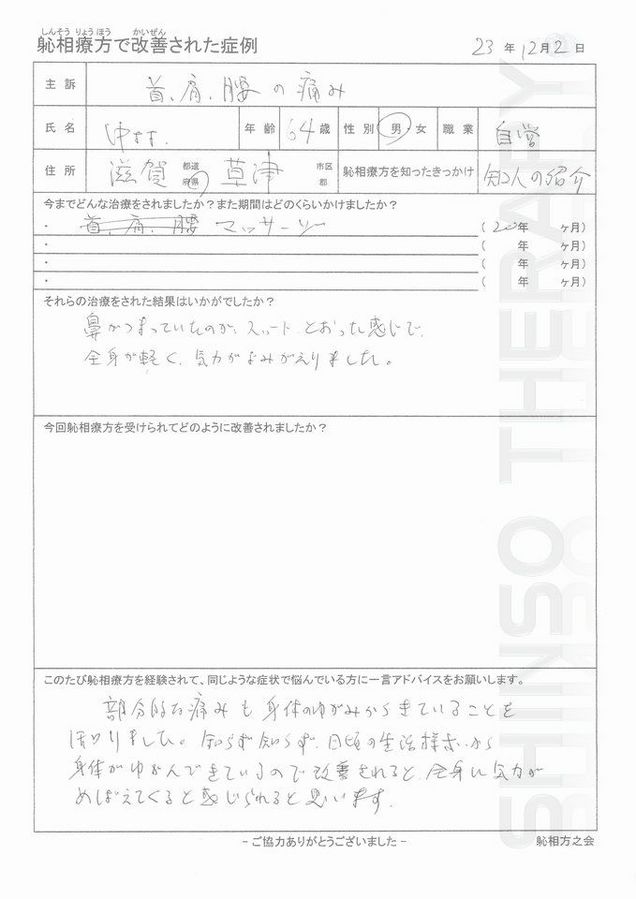 しんそう りょうほう かいぜん
恥相療方で改善された症例 23 年 12 月 2 日
主 訴 首、肩、腰の痛み
氏 名 年 齢 64 歳 性 別 男・女 職 業 自営
住 所 滋賀 都道府県 草津 市区郡 恥相療方を知ったきっかけ 知人の紹介
今までどんな治療をされましたか？また期間はどのくらいかけましたか？
・ 首、肩、腰 マッサージ ( 20 年 ヶ月)
・ ( 年 ヶ月)
・ ( 年 ヶ月)
・ ( 年 ヶ月)
それらの治療をされた結果はいかがでしたか？
鼻がつまっていたのが、スゥート とおった感じで、
全身が軽く、気力がよみがえりました。
今回恥相療方を受けられてどのように改善されましたか？
このたび恥相療方を経験されて、同じような症状で悩んでいる方に一言アドバイスをお願いします。
部分的な痛みも身体のゆがみからきていることを
知りました。知らず知らず、日頃の生活様式から
身体がゆがんできているので改善されると、全身に気力が
めばえてくると感じられると思います。
- ご協力ありがとうございました -
恥相方之会
SHINSO THERAPY